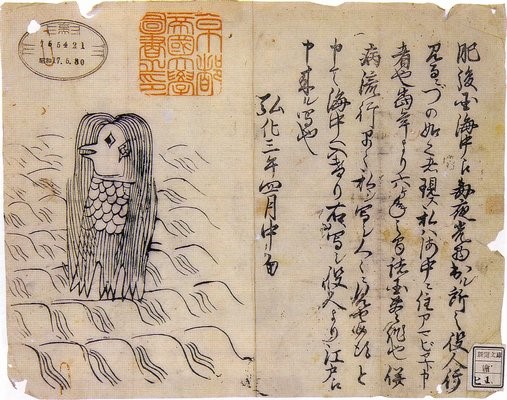 肥後国海中え毎夜光物出ル所之役人行
見るニづの如く者現ス私ハ海中ニ住アマビヱト申
者也当年より六ヶ年之間諸国豊作也併
病流行早々私ヲ写シ人々ニ見せ候得と
申て海中へ入けり右写シ役人より江戸え
申来ル写也
弘化三年四月中旬
京都
帝國大學
圖書之印
昭和17.5.30